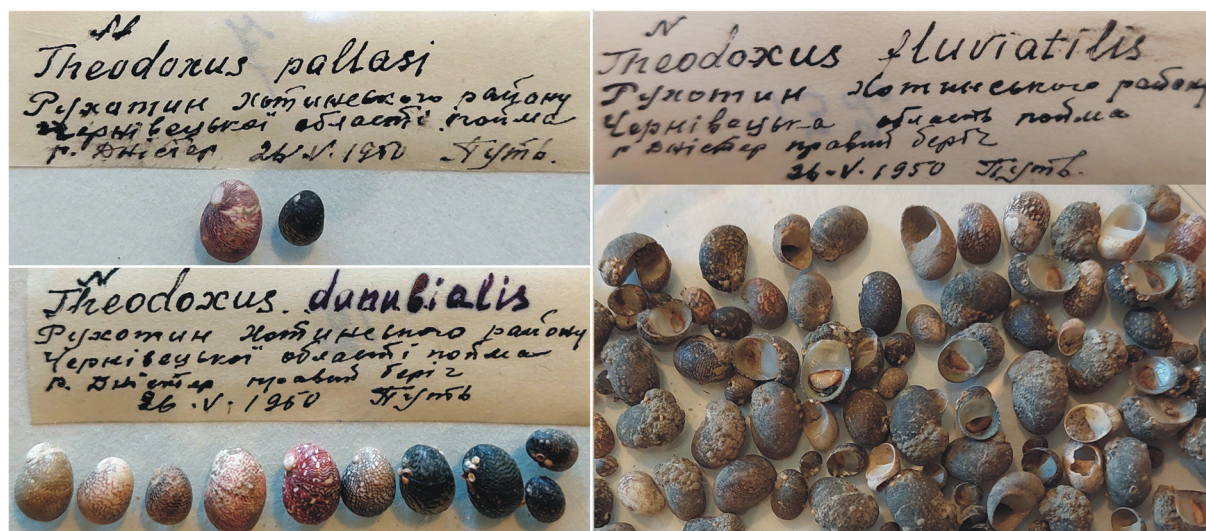 N
Theodoxus pallasi
Рухотин Хотинського району
Чернівецької області пойма
р. Дністер 26.V.1950 Путь.
N
Theodoxus danubialis
Рухотин Хотинського району
Чернівецької області пойма
р. Дністер правий беріг
26.V.1950 Путь
N
Theodoxus fluviatilis
Рухотин Хотинського району
Чернівецька область пойма
р. Дністер правий беріг
26.V.1950 Путь.